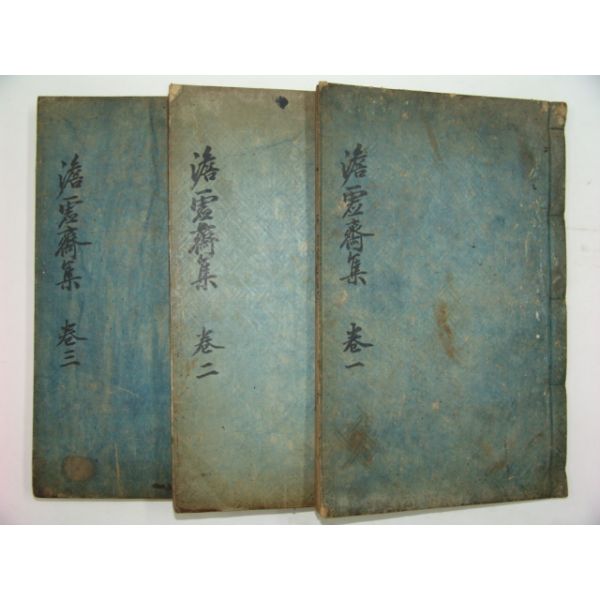 澹虛齋集 卷一
澹虛齋集 卷二
澹虛齋集 卷三